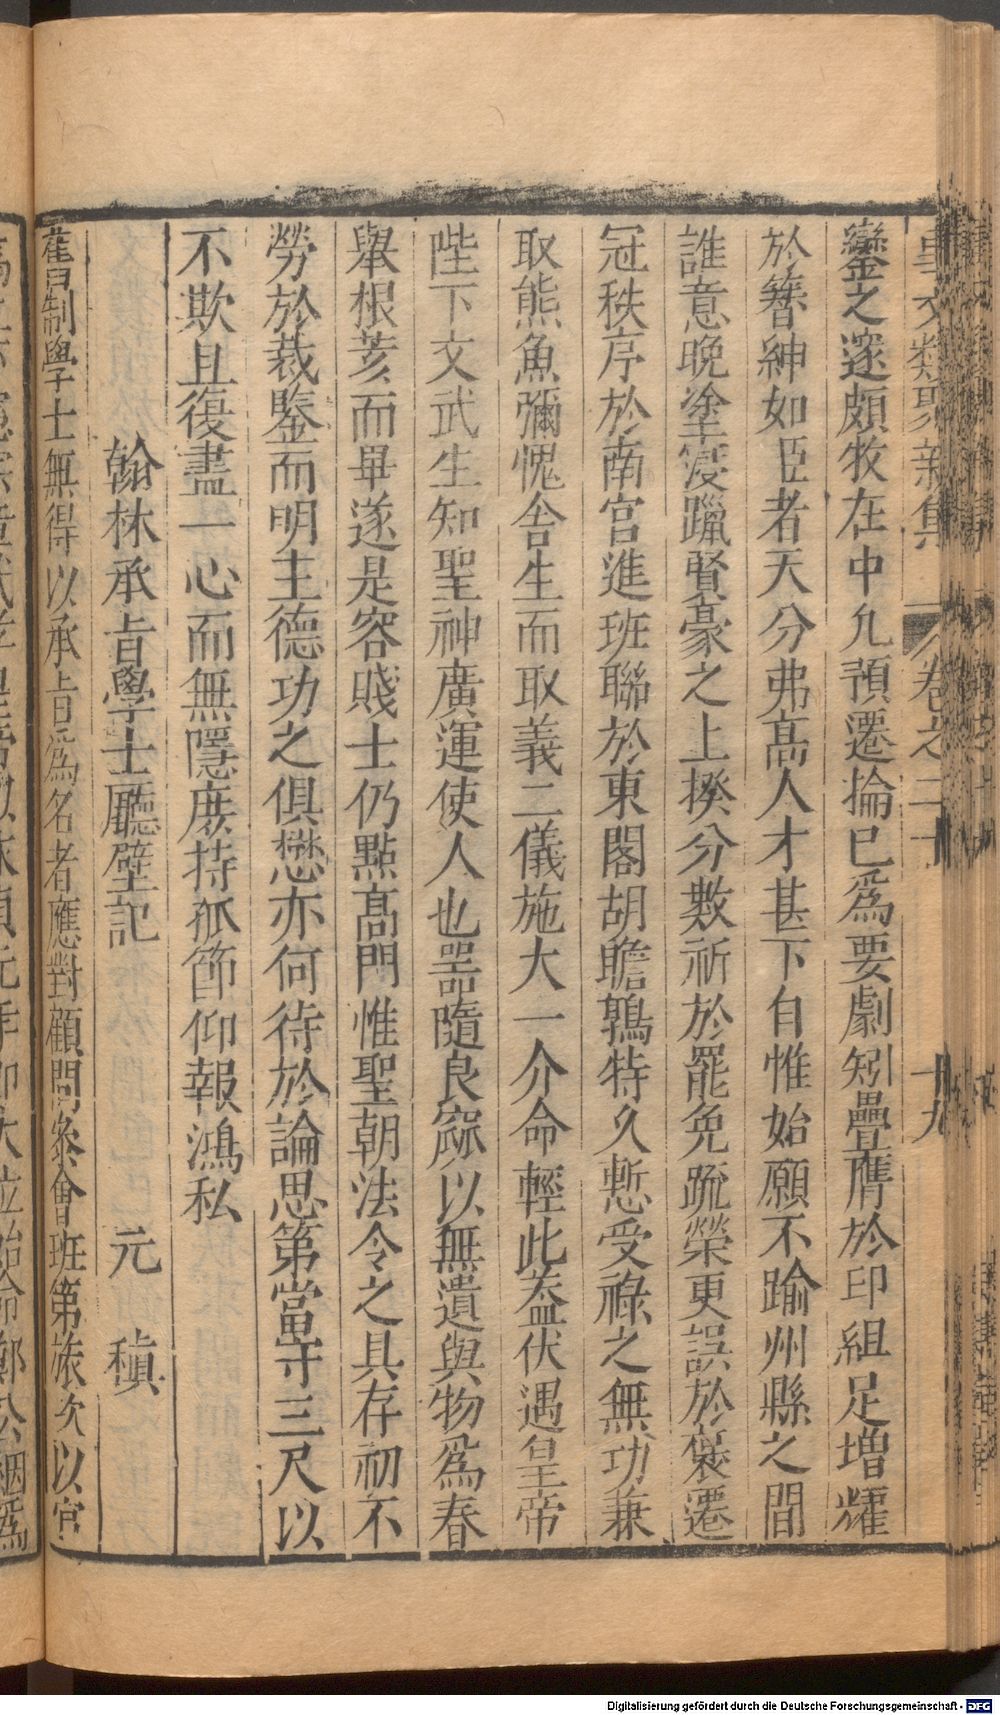 卷之二十 十九
鑾之邃頗牧在中允預遷掄已為要劇矧疊膺於印組足增耀
於簪紳如臣者天分弗高人才甚下自惟始願不踰州縣之間
誰意晚塗寖躐賢豪之上揆分數祈於罷免疏榮更誤於褒遷
冠秩序於南官進班聯於東閣胡瞻鶉特久慙受祿之無功兼
取熊魚彌愧舍生而取義二儀施大一介命輕此盖伏遇皇帝
陛下文武生知聖神廣運使人也噐隨良窳以無遺與物為春
舉根荄而畢遂是容賤士仍點髙門惟聖朝法令之具存初不
勞於裁鑒而明主德功之俱懋亦何待於論思第當守三尺以
不欺且復盡一心而無隱庻持孤節仰報鴻私
翰林承旨學士廳壁記 元 稹
舊制學士無得以承旨爲名者應對顧問參會班第旅次以官